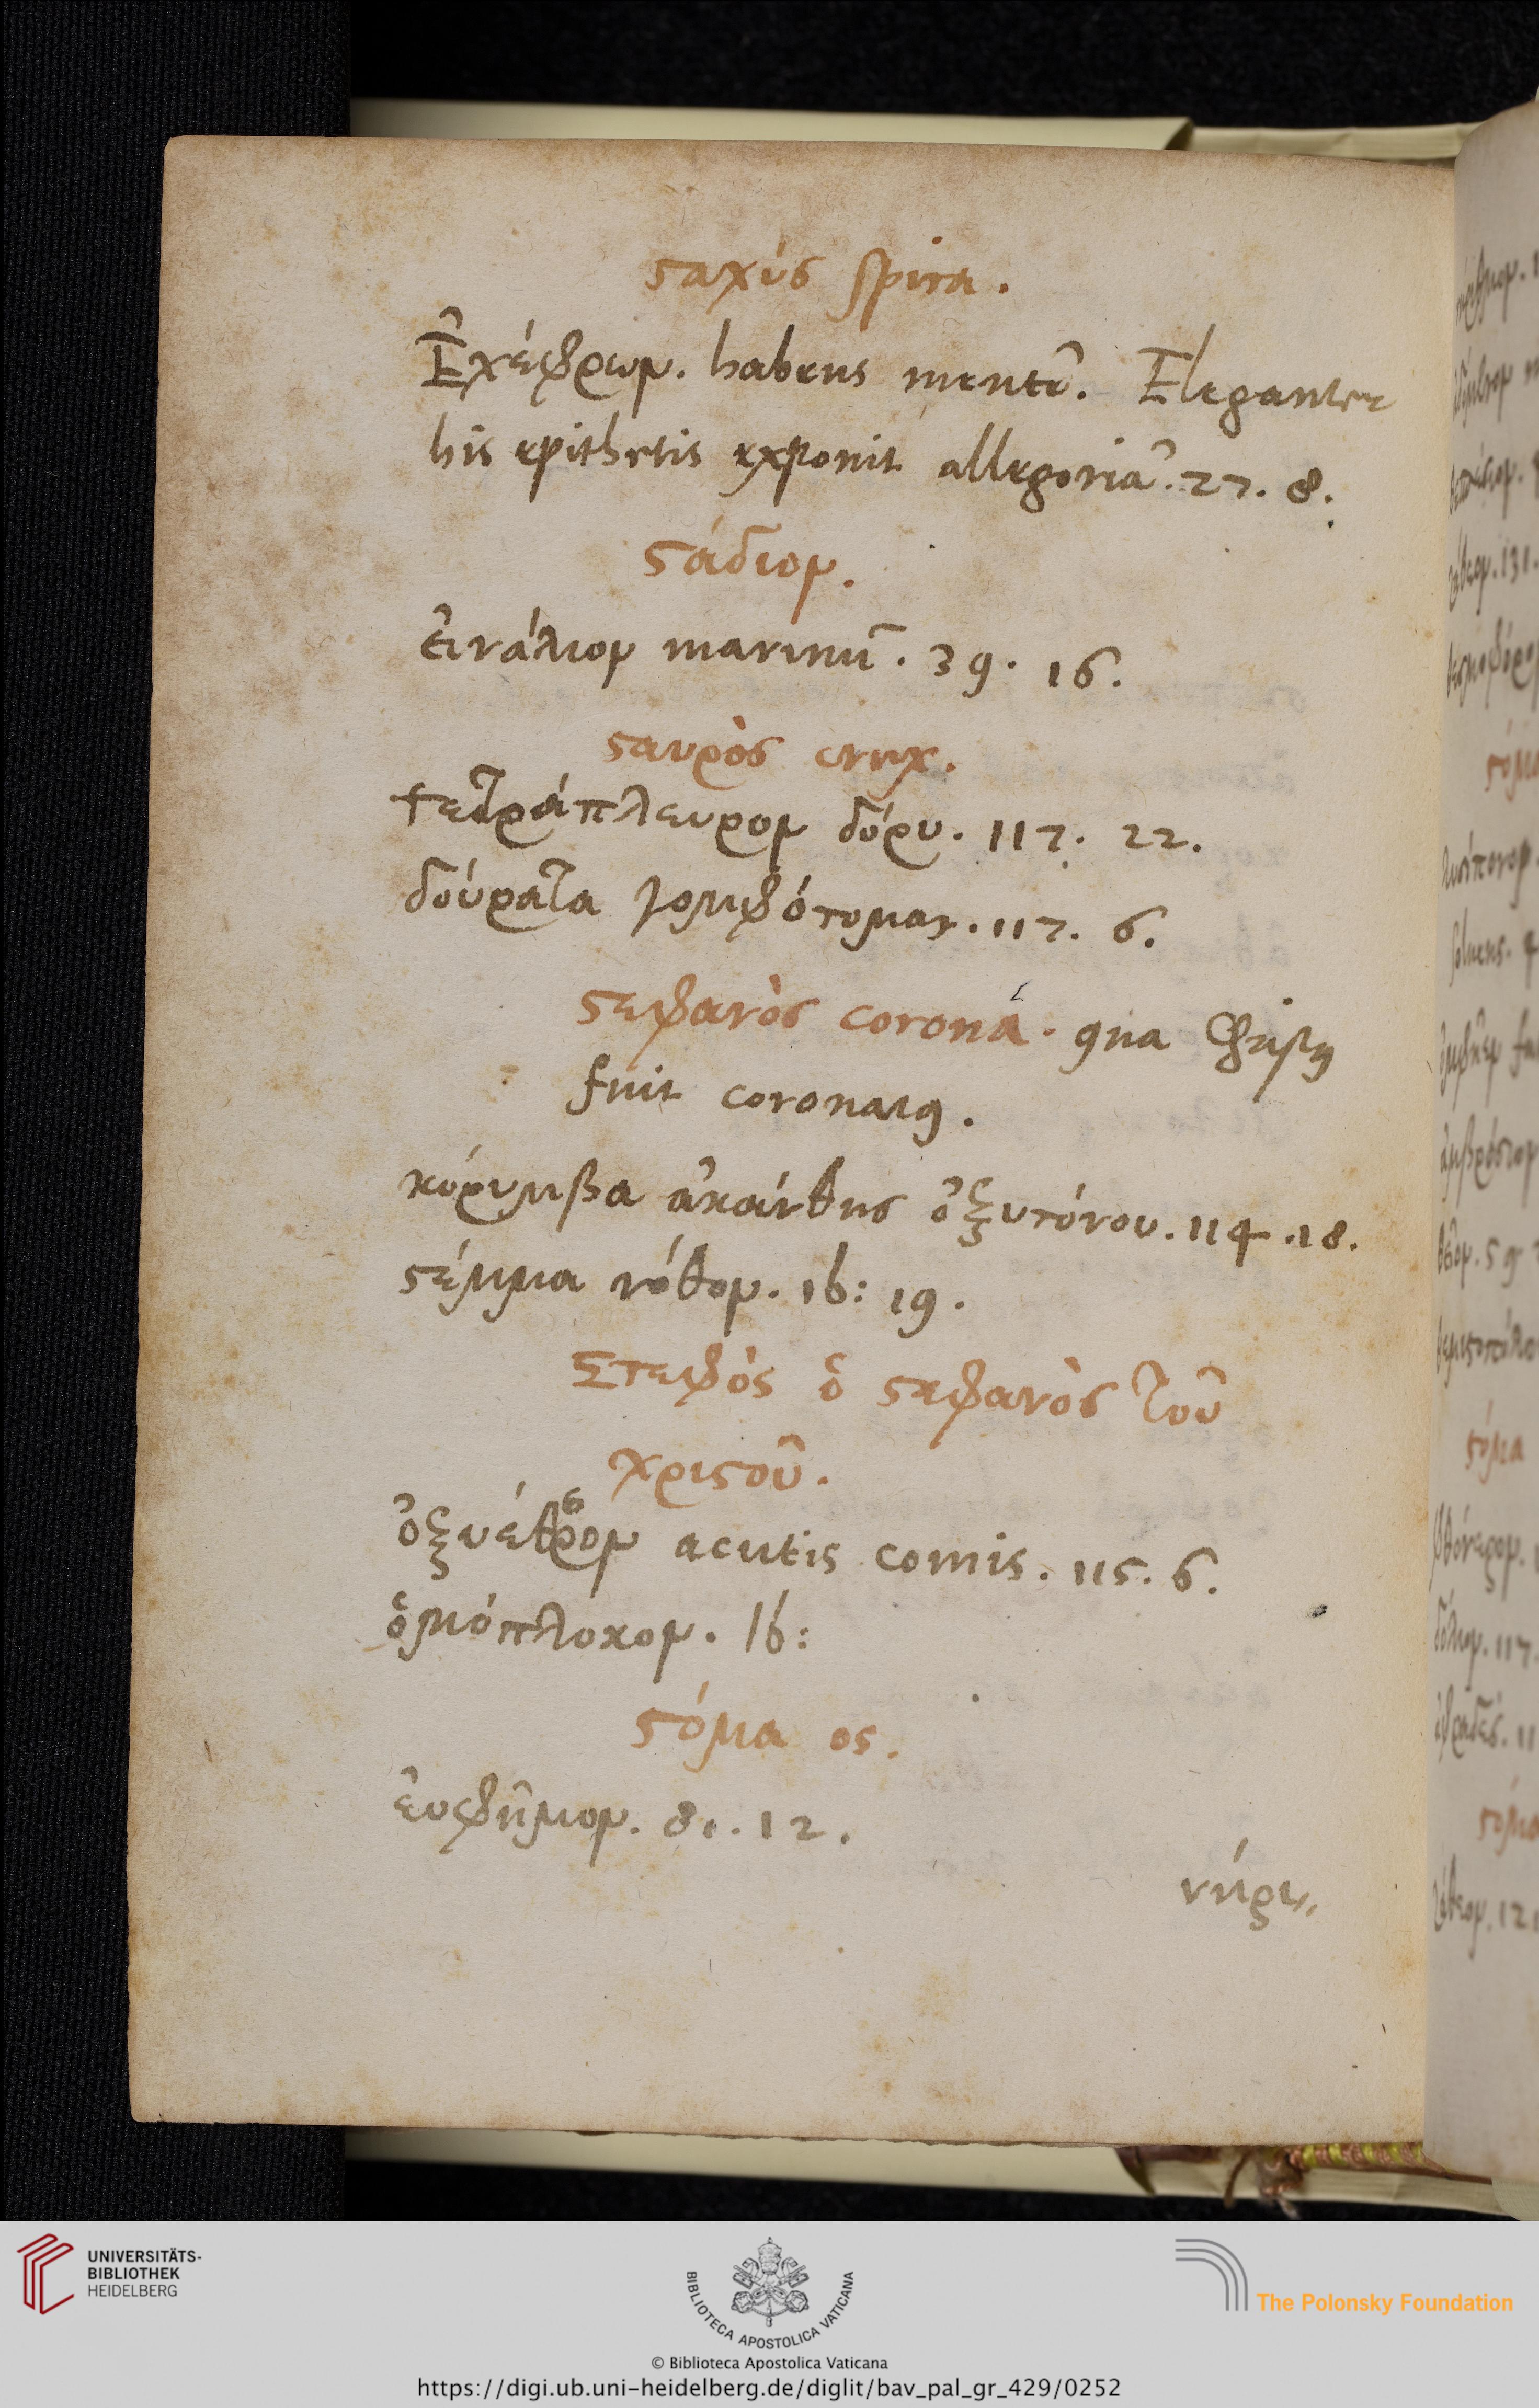 ϛαχύς spica.
Ἐχέφρων. habens mentē. Eleganter
his epithetis exponit allegoriā. 27. 8.
ϛάδιον.
εἰνάλιον marinū. 39. 16.
ϛαυρὸς crux.
τετράπλευρον δόρυ. 117. 22.
δούρατα . 117. 6.
ϛεφανὸς corona. qua Christꝰ
fuit coronatꝰ.
κόρυμβα ἀκάνθης ὀξυτόνου. 114. 18.
ϛέμμα νόθον. ib: 19.
Στεφὸς ὁ ϛεφανὸς τοῦ
χριϛοῦ.
acutis comis. 115. 6.
ὁμόπλοκον. Ib:
ϛόμα os.
ἐυφήμιον. 81. 12.
UNIVERSITÄTS-
BIBLIOTHEK
HEIDELBERG
BIBLIOTECA APOSTOLICA VATICANA
The Polonsky Foundation
© Biblioteca Apostolica Vaticana
https://digi.ub.uni-heidelberg.de/diglit/bav_pal_gr_429/0252